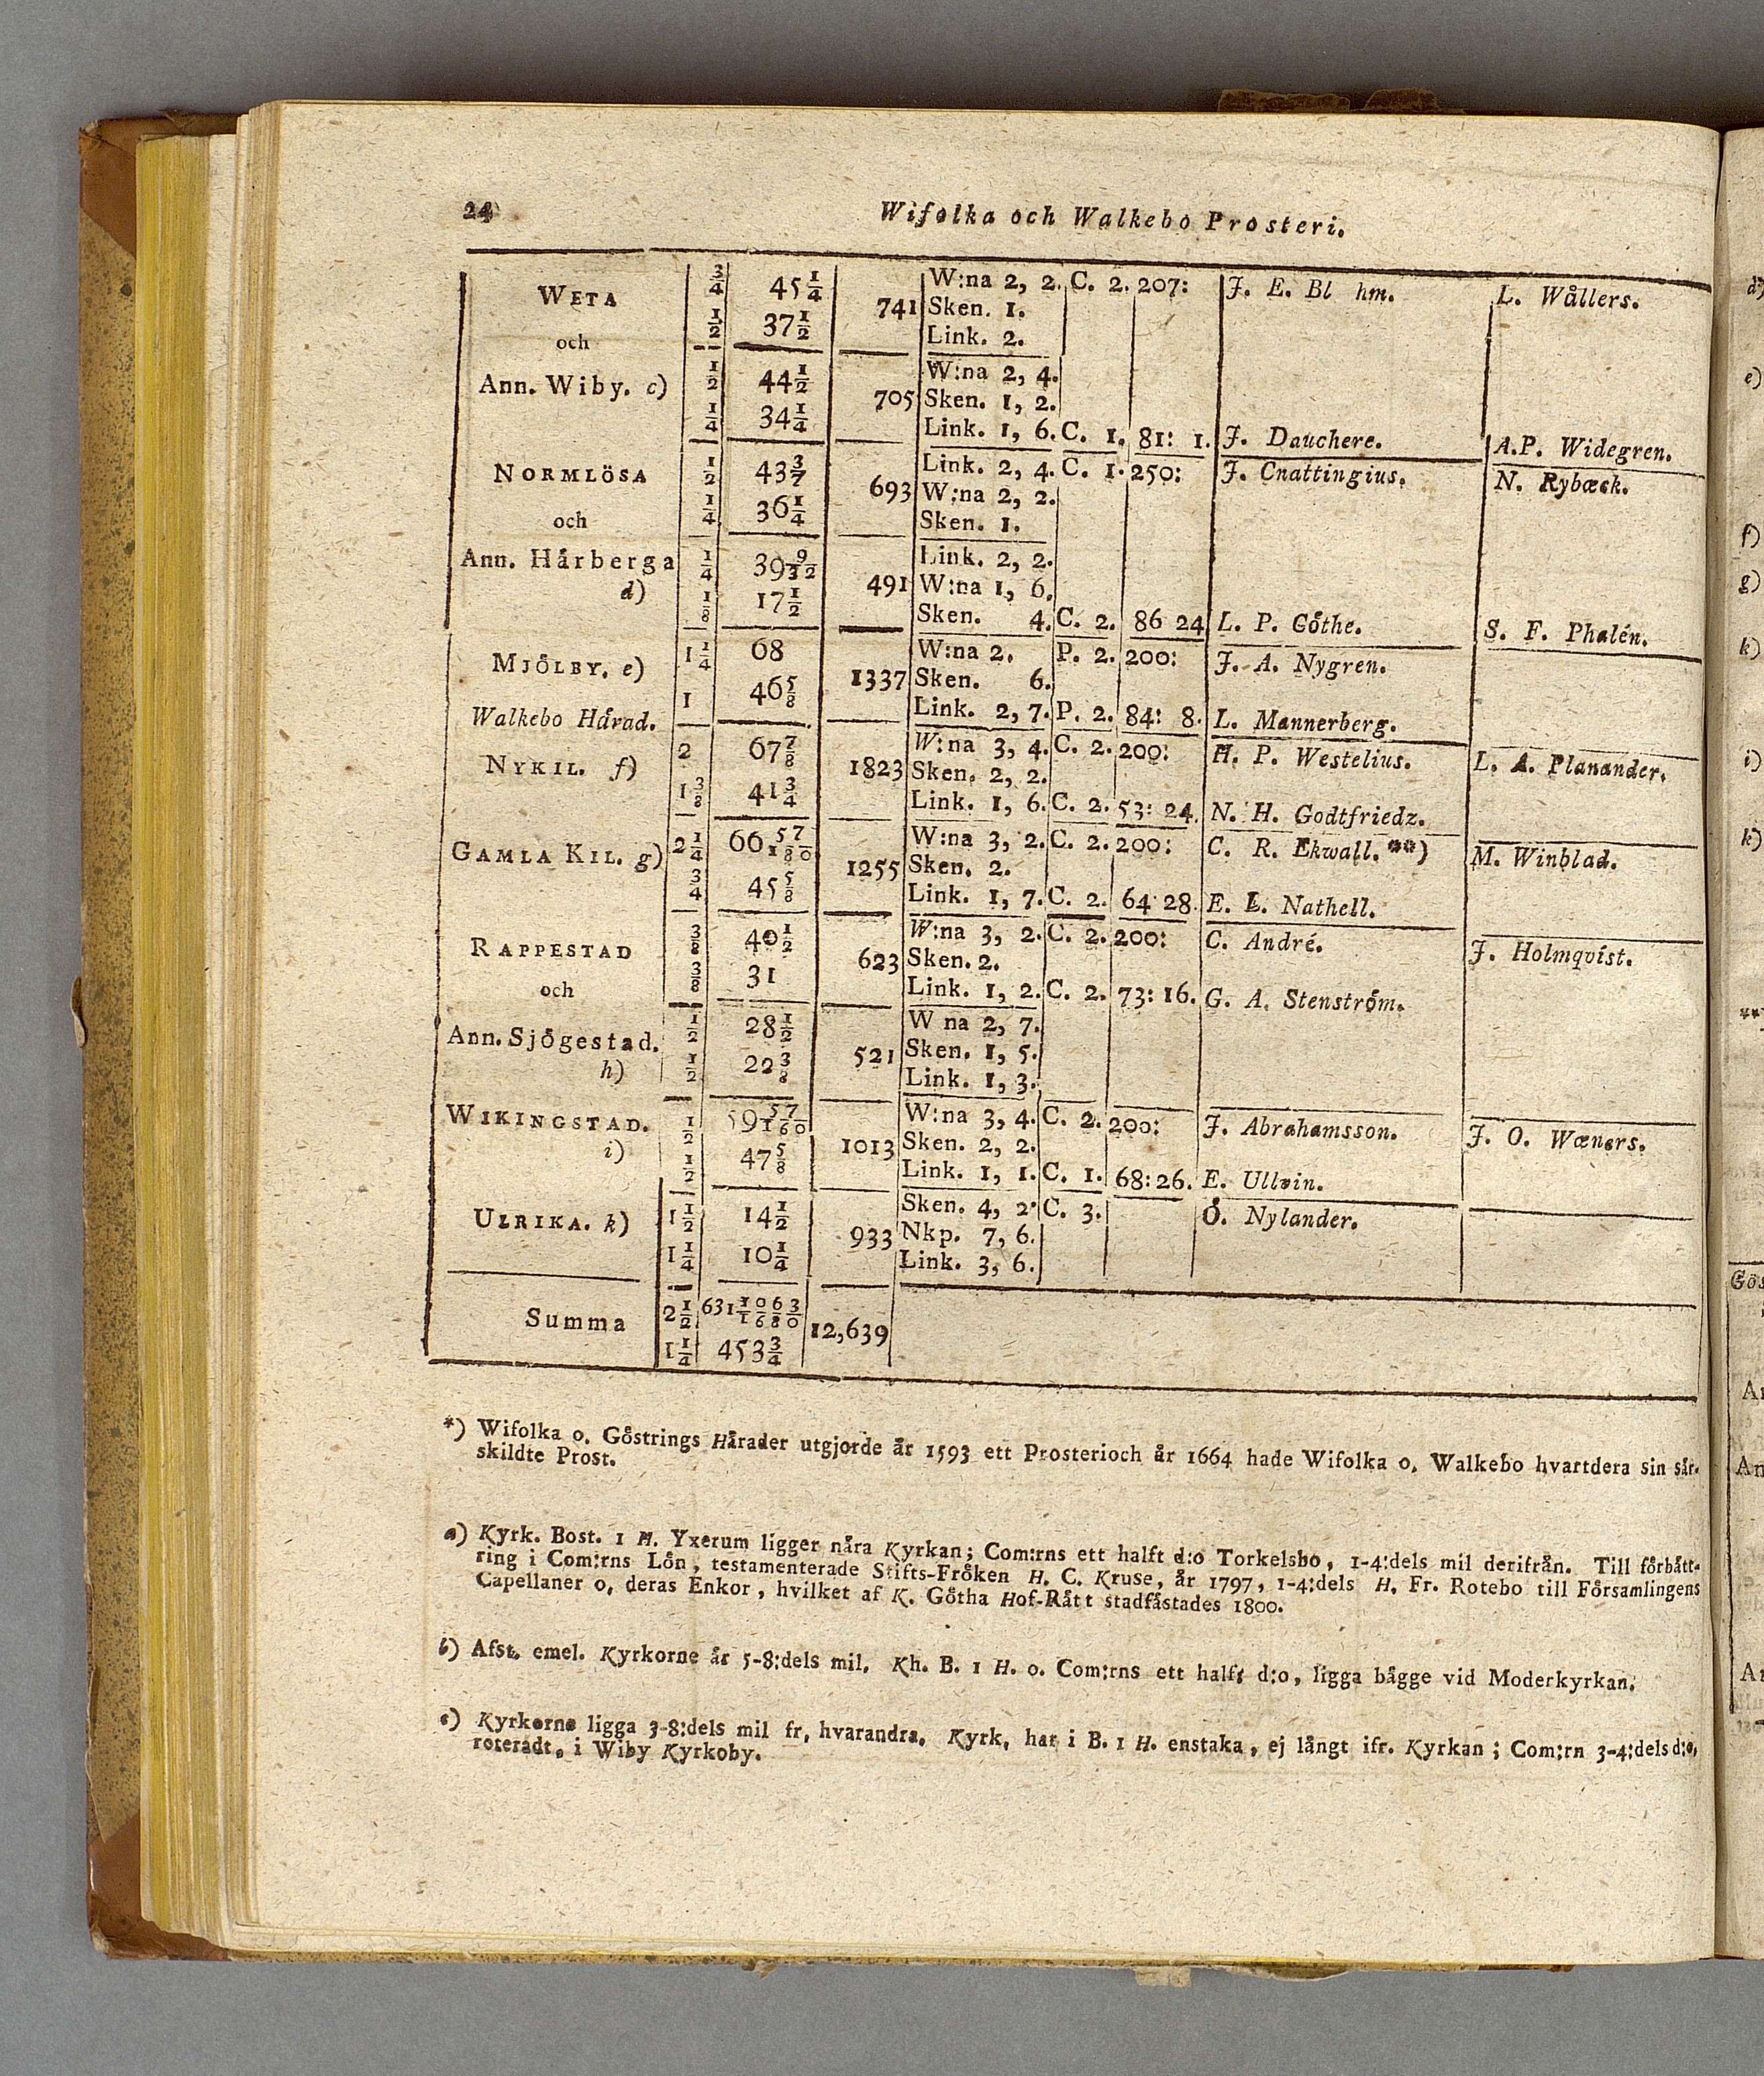 24 Wifolka och Walkebo Prosteri.
WETA 3/4 45 1/4 741 W:na 2, 2. C. 2. 207: J. E. Bl hm. L. Wållers.
1/2 37 1/2 Sken. 1.
och Link. 2.
Ann. Wiby. c) 1/2 44 1/2 705 W:na 2, 4.
1/4 34 1/4 Sken. 1, 2.
Link. 1, 6. C. 1. 81: 1. J. Dauchere. A.P. Widegren.
NORMLÖSA 1/2 43 3/7 693 Link. 2, 4. C. 1. 250: J. Cnattingius. N. Rybæck.
1/4 36 1/4 W:na 2, 2.
och Sken. 1.
Ann. Hårberga 1/4 39 9/32 491 Link. 2, 2.
d) 1/8 17 1/2 W:na 1, 6.
Sken. 4. C. 2. 86 24 L. P. Göthe. S. F. Phalén.
MJÖLBY. e) 1 1/4 68 1337 W:na 2. P. 2. 200: J. A. Nygren.
1 46 5/8 Sken. 6.
Walkebo Härad. Link. 2, 7. P. 2. 84: 8. L. Mannerberg.
NYKIL. f) 2 67 7/8 1823 W:na 3, 4. C. 2. 200: H. P. Westelius. L. A. Planander.
1 3/8 41 3/4 Sken. 2, 2.
Link. 1, 6. C. 2. 53: 24. N. H. Godtfriedz.
GAMLA KIL. g) 2 1/4 66 57/180 1255 W:na 3, 2. C. 2. 200: C. R. Ekwall. **) M. Winblad.
3/4 45 5/8 Sken. 2.
Link. 1, 7. C. 2. 64 28. E. L. Nathell.
RAPPESTAD 3/8 40 1/2 623 W:na 3, 2. C. 2. 200: C. André. J. Holmqvist.
3/8 31 Sken. 2.
och Link. 1, 2. C. 2. 73: 16. G. A. Stenström.
Ann. Sjögestad. 1/2 28 1/2 521 W na 2, 7.
h) 1/2 22 3/8 Sken. 1, 5.
Link. 1, 3.
WIKINGSTAD. 1/2 59 57/160 1013 W:na 3, 4. C. 2. 200: J. Abrahamsson. J. O. Wæners.
i) 1/2 47 5/8 Sken. 2, 2.
Link. 1, 1. C. 1. 68: 26. E. Ullvin.
ULRIKA. k) 1 1/2 14 1/2 933 Sken. 4, 2. C. 3. Ö. Nylander.
1 1/4 10 1/4 Nkp. 7, 6.
Link. 3, 6.
Summa 2 1/2 631 1063/1680 12,639
1 1/4 453 3/4
*) Wifolka o. Göstrings Härader utgjorde år 1593 ett Prosterioch år 1664 hade Wifolka o. Walkebo hvartdera sin sår-
skildte Prost.
a) Kyrk. Bost. 1 H. Yxerum ligger nåra Kyrkan; Com:rns ett halft d:o Torkelsbo, 1-4:dels mil derifrån. Till förbått-
ring i Com:rns Lön, testamenterade Stifts-Fröken H. C. Kruse, år 1797, 1-4:dels H. Fr. Rotebo till Församlingens
Capellaner o. deras Enkor, hvilket af K. Götha Hof-Rått stadfåstades 1800.
b) Afst. emel. Kyrkorne år 5-8:dels mil. Kh. B. 1 H. o. Com:rns ett halft d:o, ligga bågge vid Moderkyrkan.
c) Kyrkorne ligga 3-8:dels mil fr. hvarandra. Kyrk. har i B. 1 H. enstaka, ej långt ifr. Kyrkan; Com:rn 3-4:dels d:o,
roteradt. i Wiby Kyrkoby.
d)
e)
f)
g)
k)
i)
k)
**
Gös
An
An